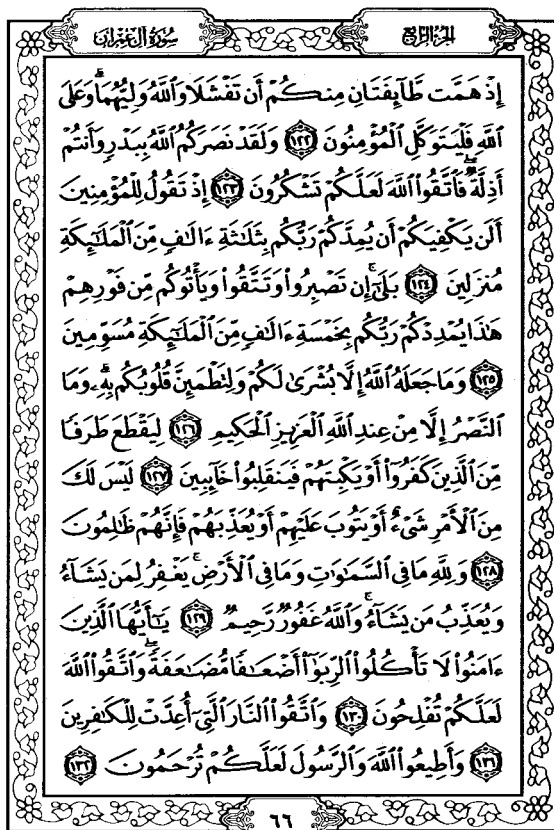 سورة آل عمران
الجزء الرابع
إِذْ هَمَّت طَّآئِفَتَانِ مِنكُمْ أَن تَفْشَلَا وَٱللَّهُ وَلِيُّهُمَاۗ وَعَلَى
ٱللَّهِ فَلْيَتَوَكَّلِ ٱلْمُؤْمِنُونَ ﴿١٢٢﴾ وَلَقَدْ نَصَرَكُمُ ٱللَّهُ بِبَدْرٍ وَأَنتُمْ
أَذِلَّةٌۖ فَٱتَّقُوا۟ ٱللَّهَ لَعَلَّكُمْ تَشْكُرُونَ ﴿١٢٣﴾ إِذْ تَقُولُ لِلْمُؤْمِنِينَ
أَلَن يَكْفِيَكُمْ أَن يُمِدَّكُمْ رَبُّكُم بِثَلَٰثَةِ ءَالَٰفٍ مِّنَ ٱلْمَلَٰٓئِكَةِ
مُنزَلِينَ ﴿١٢٤﴾ بَلَىٰٓۚ إِن تَصْبِرُوا۟ وَتَتَّقُوا۟ وَيَأْتُوكُم مِّن فَوْرِهِمْ
هَٰذَا يُمْدِدْكُمْ رَبُّكُم بِخَمْسَةِ ءَالَٰفٍ مِّنَ ٱلْمَلَٰٓئِكَةِ مُسَوِّمِينَ
﴿١٢٥﴾ وَمَا جَعَلَهُ ٱللَّهُ إِلَّا بُشْرَىٰ لَكُمْ وَلِتَطْمَئِنَّ قُلُوبُكُم بِهِۦۗ وَمَا
ٱلنَّصْرُ إِلَّا مِنْ عِندِ ٱللَّهِ ٱلْعَزِيزِ ٱلْحَكِيمِ ﴿١٢٦﴾ لِيَقْطَعَ طَرَفًا
مِّنَ ٱلَّذِينَ كَفَرُوٓا۟ أَوْ يَكْبِتَهُمْ فَيَنقَلِبُوا۟ خَآئِبِينَ ﴿١٢٧﴾ لَيْسَ لَكَ
مِنَ ٱلْأَمْرِ شَىْءٌ أَوْ يَتُوبَ عَلَيْهِمْ أَوْ يُعَذِّبَهُمْ فَإِنَّهُمْ ظَٰلِمُونَ
﴿١٢٨﴾ وَلِلَّهِ مَا فِى ٱلسَّمَٰوَٰتِ وَمَا فِى ٱلْأَرْضِۚ يَغْفِرُ لِمَن يَشَآءُ
وَيُعَذِّبُ مَن يَشَآءُۚ وَٱللَّهُ غَفُورٌ رَّحِيمٌ ﴿١٢٩﴾ يَٰٓأَيُّهَا ٱلَّذِينَ
ءَامَنُوا۟ لَا تَأْكُلُوا۟ ٱلرِّبَوٰٓا۟ أَضْعَٰفًا مُّضَٰعَفَةًۖ وَٱتَّقُوا۟ ٱللَّهَ
لَعَلَّكُمْ تُفْلِحُونَ ﴿١٣٠﴾ وَٱتَّقُوا۟ ٱلنَّارَ ٱلَّتِىٓ أُعِدَّتْ لِلْكَٰفِرِينَ
﴿١٣١﴾ وَأَطِيعُوا۟ ٱللَّهَ وَٱلرَّسُولَ لَعَلَّكُمْ تُرْحَمُونَ ﴿١٣٢﴾
٦٦